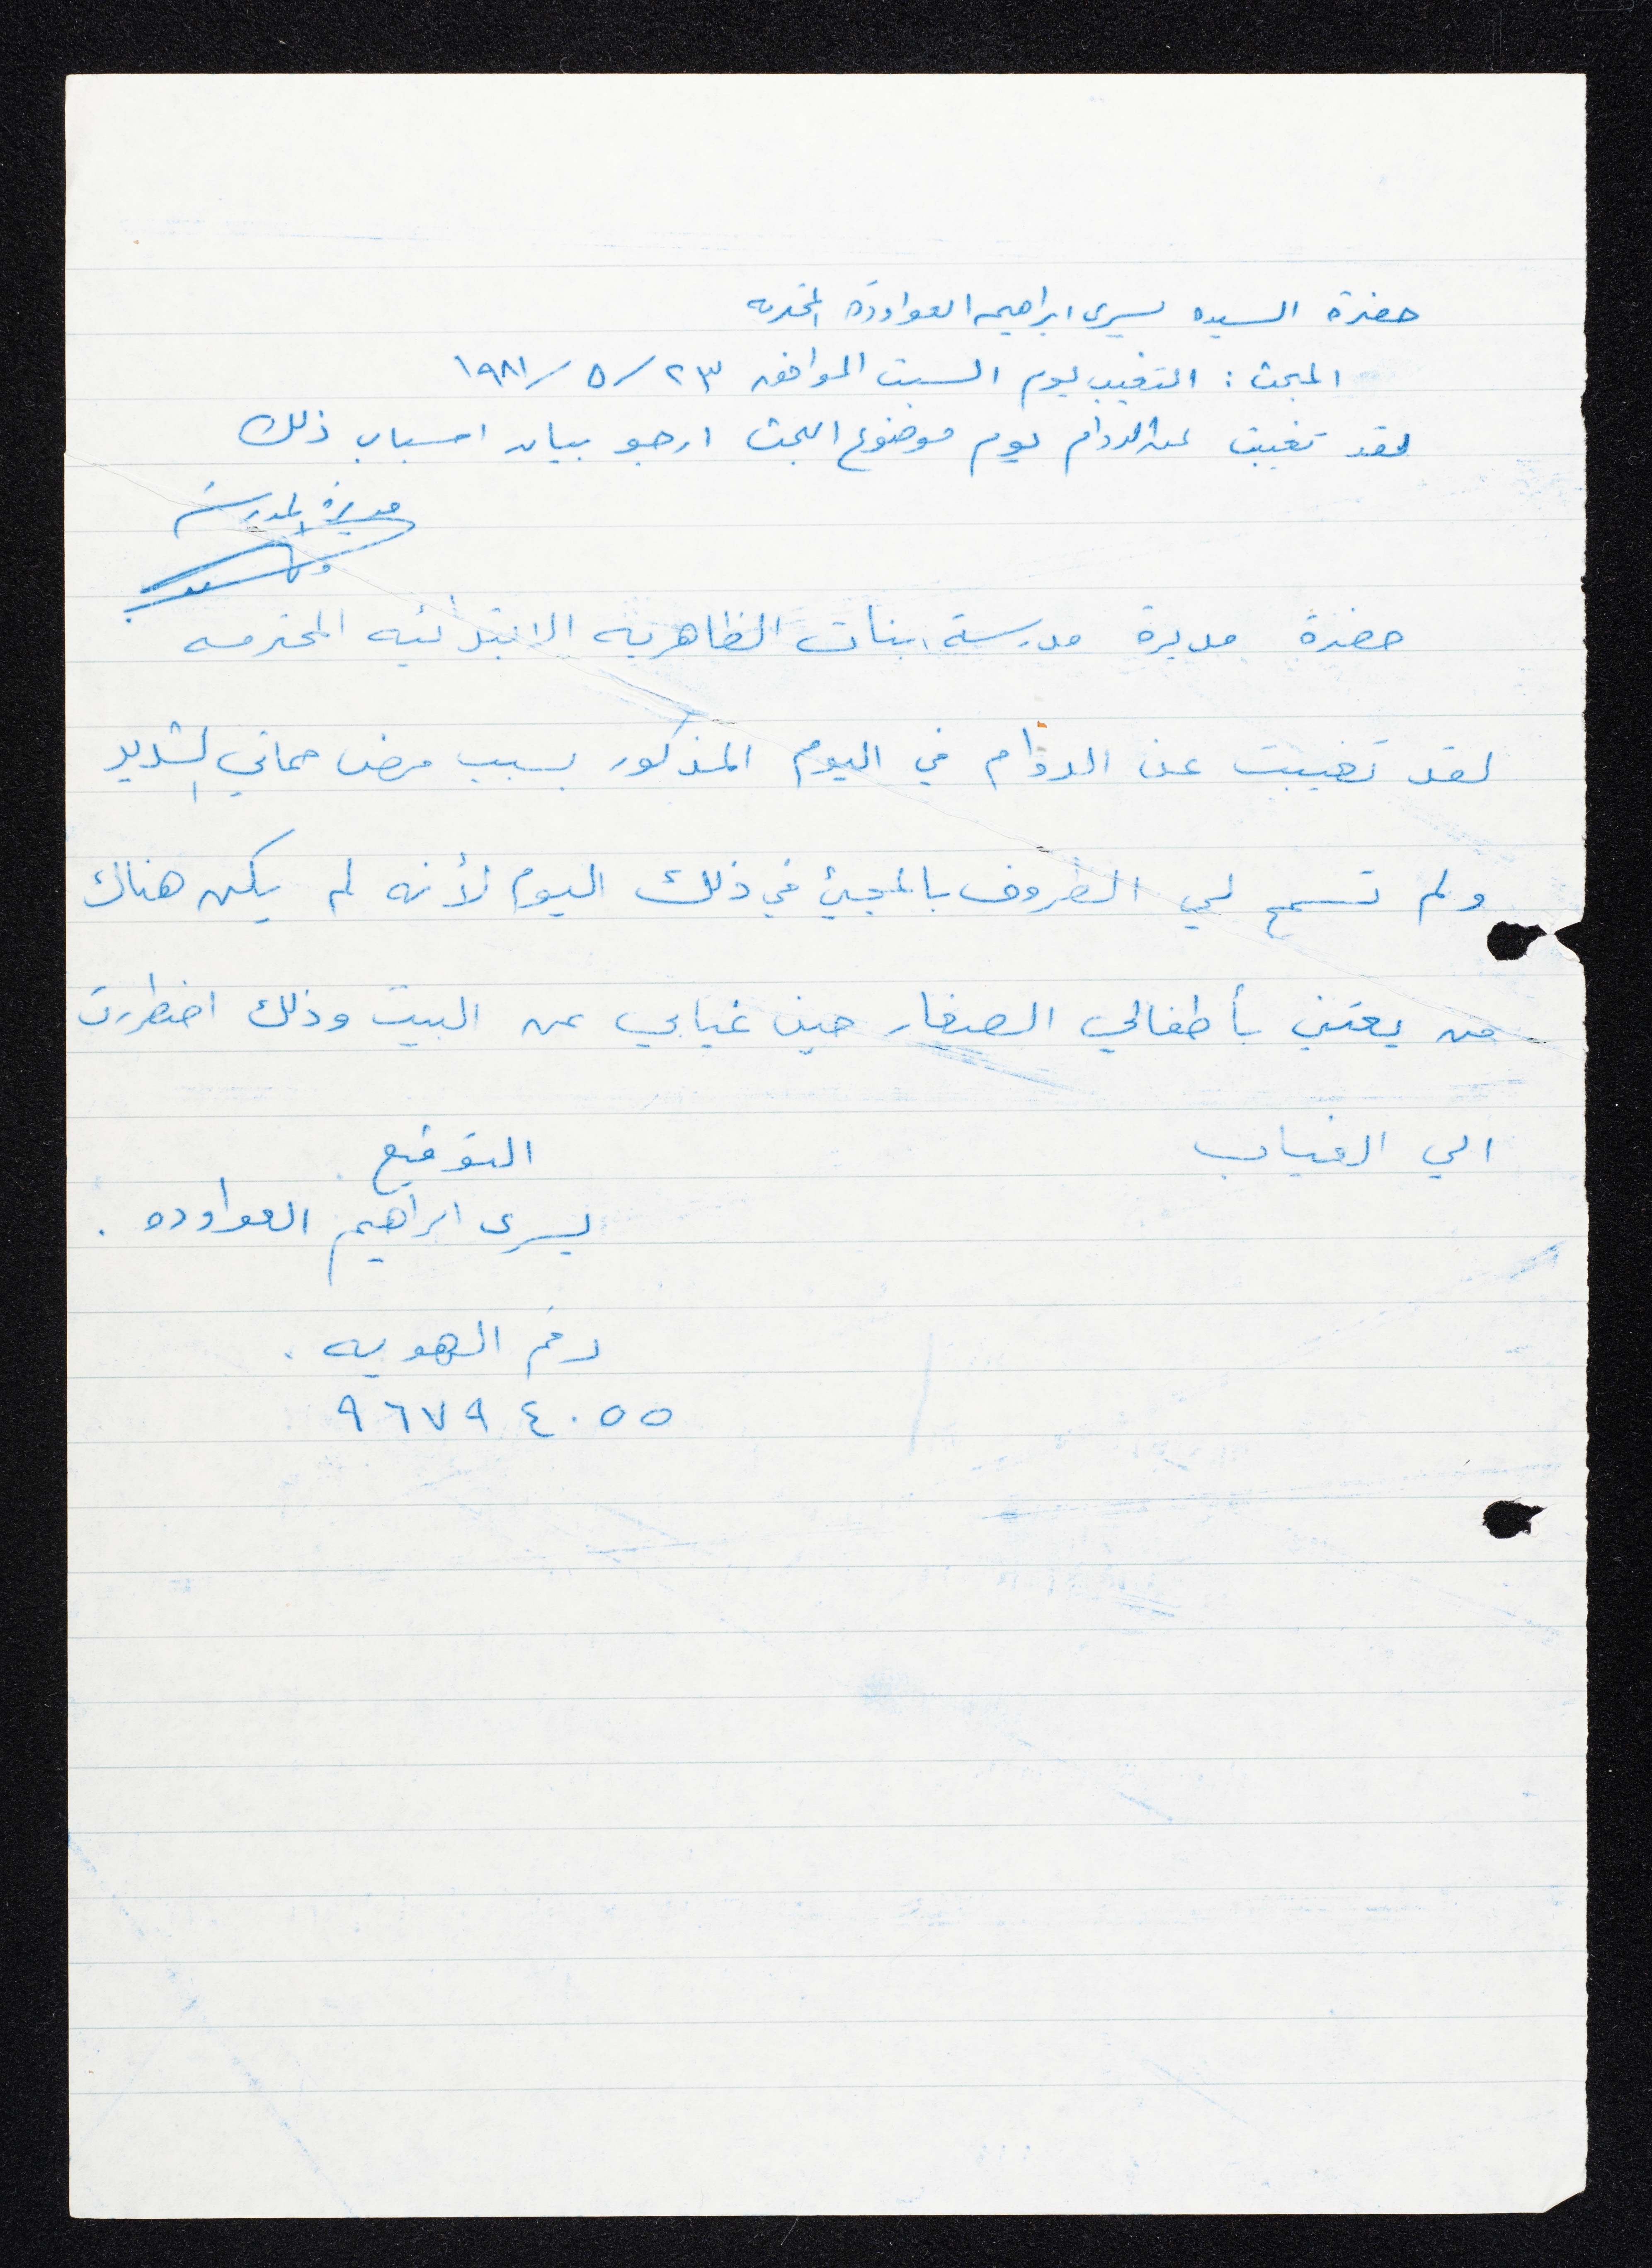 حضرة السيده يسرى ابراهيم العواودة المحترمه
المبحث : التغيب ليوم السبت الموافق ٢٣ / ٥ / ١٩٨١
لقد تغيبت عن الدوام يوم موضوع البحث ارجو بيان اسباب ذلك
مديرة المدرسة
حضرة مديرة مدرسة بنات الظاهريه الابتدائيه المحترمه
لقد تغيبت عن الدوام في اليوم المذكور بسبب مرض حماتي الشديد
ولم تسمح لي الظروف بالمجيئ في ذلك اليوم لأنه لم يكن هناك
من يعتني بأطفالي الصغار حين غيابي عن البيت وذلك اضطررت
الي الغياب
التوقيع
يسرى ابراهيم العواوده .
رقم الهويه .
٩٦٧٩٤٠٥٥